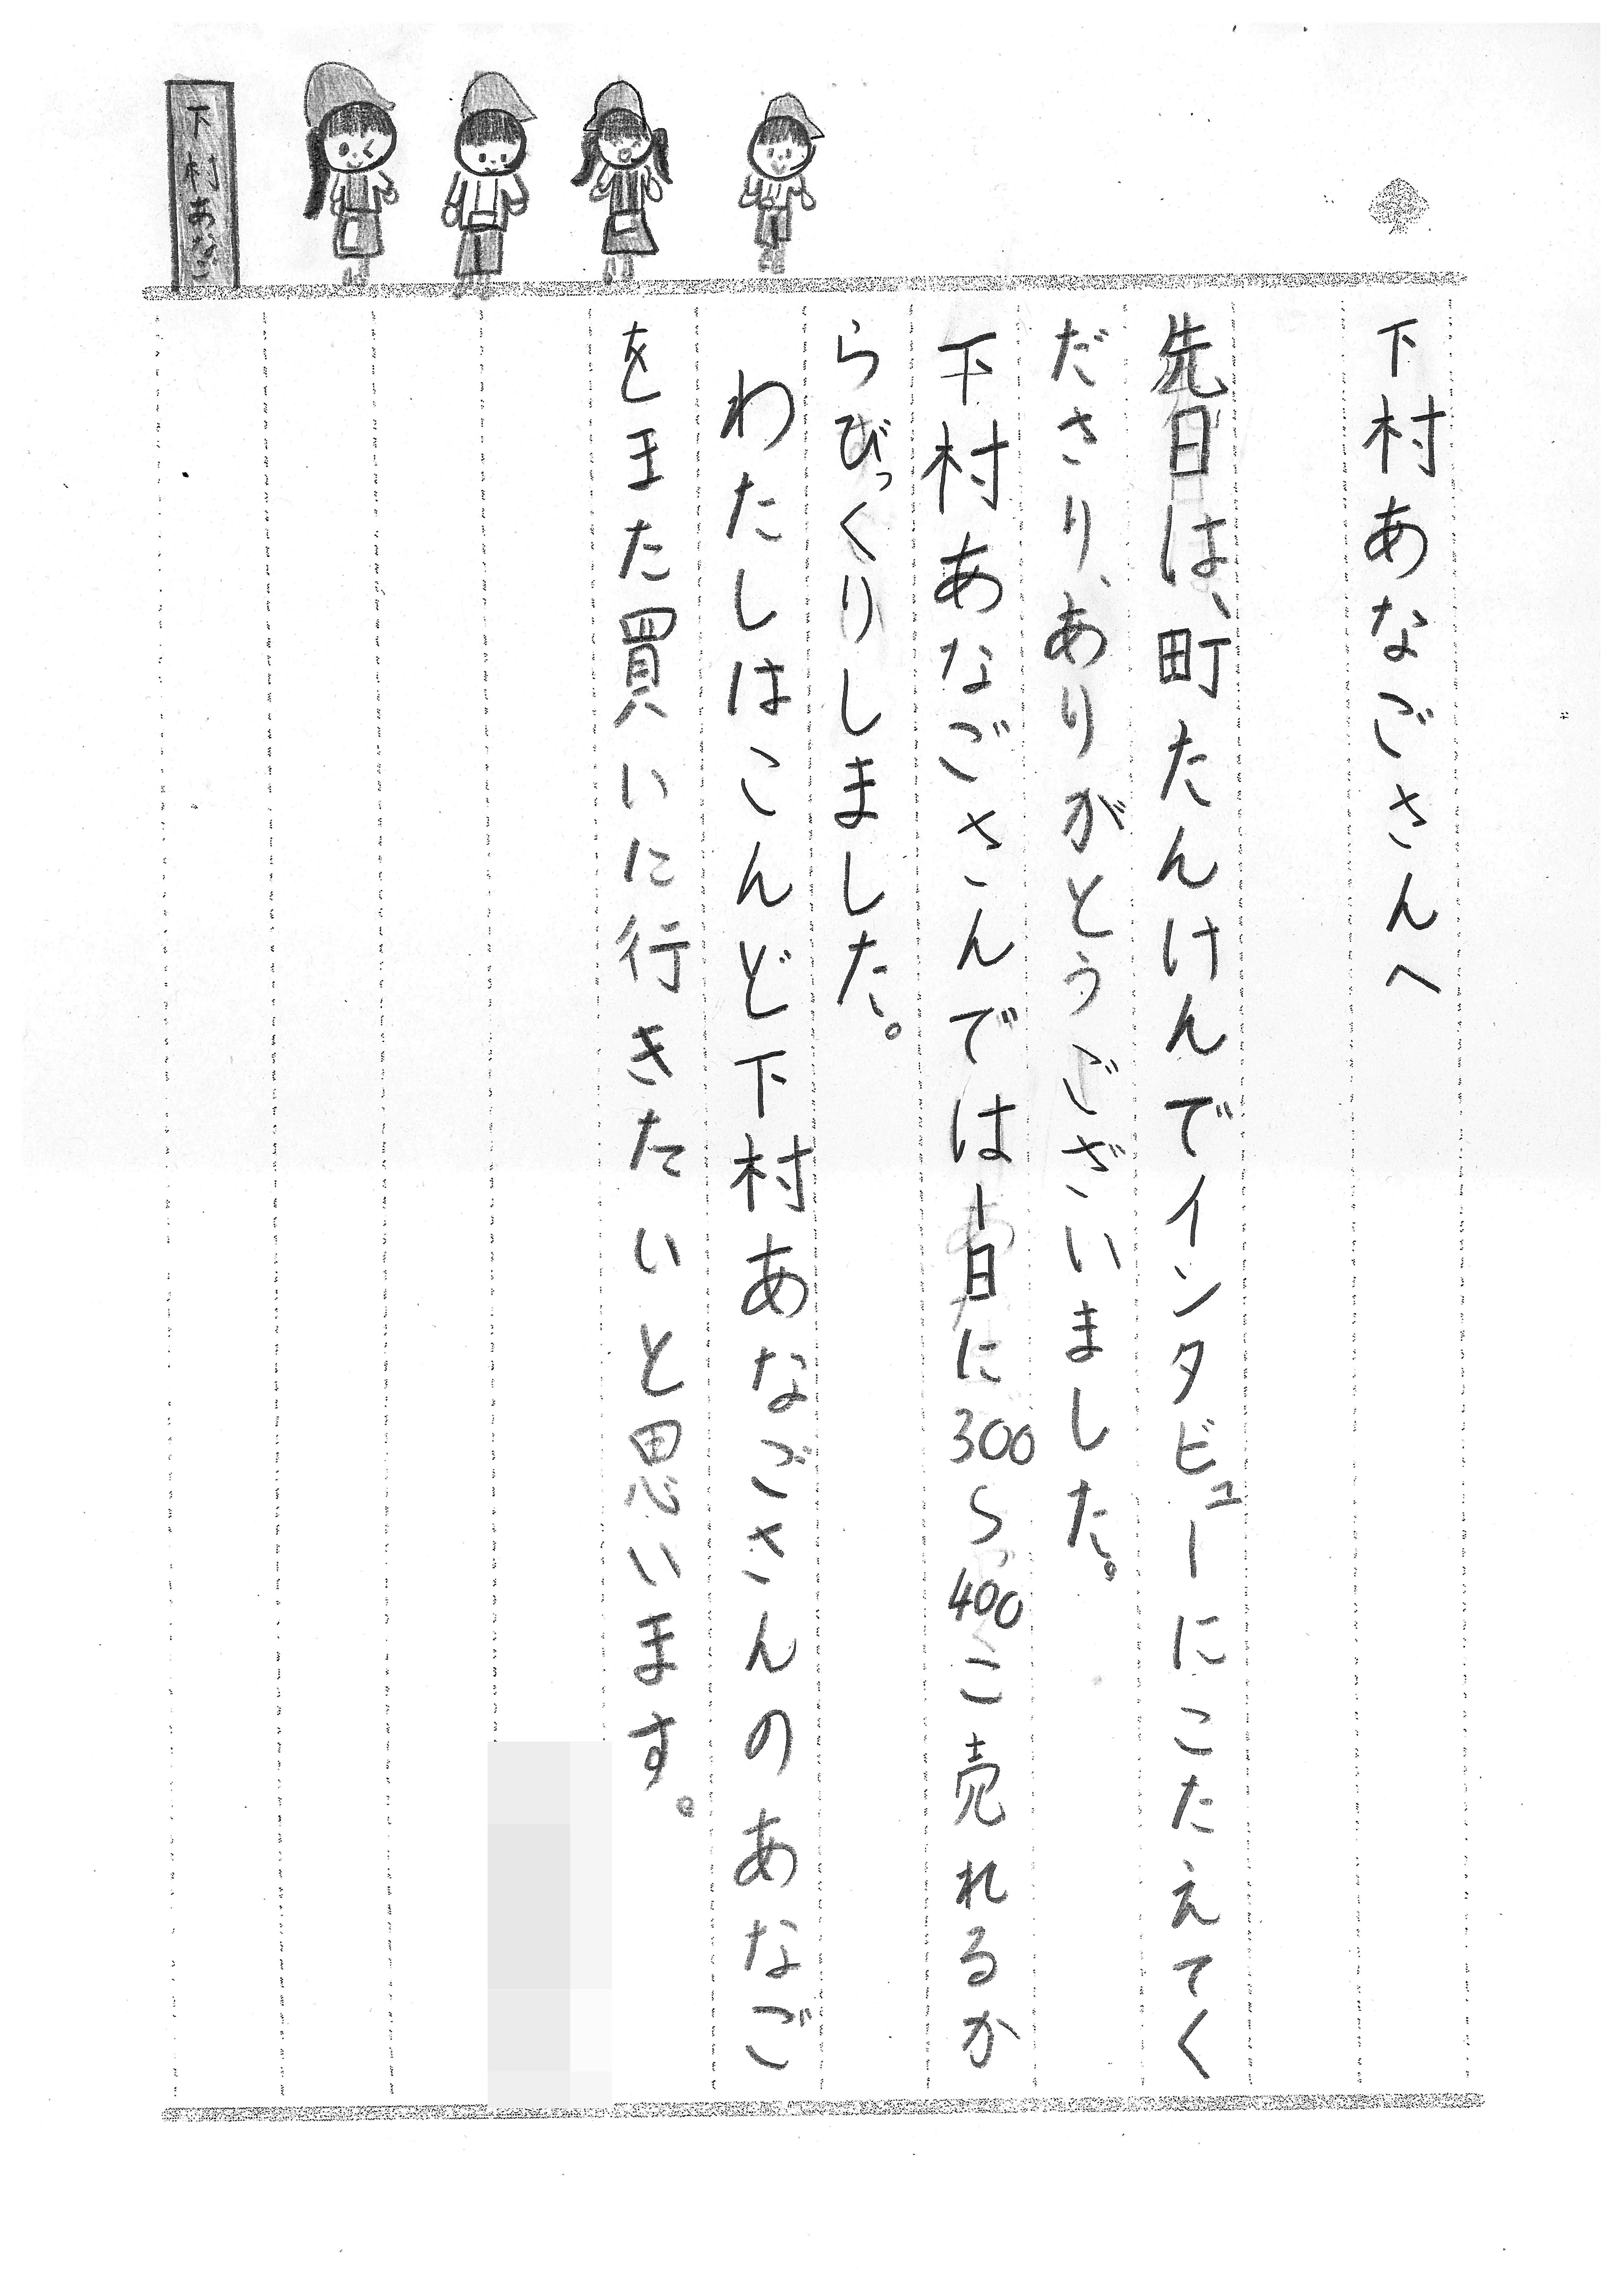 下村あなごさんへ
先日は、町たんけんでインタビューにこたえてく
ださり、ありがとうございました。
下村あなごさんでは1日に300〜400こ売れるか
らびっくりしました。
わたしはこんど下村あなごさんのあなご
をまた買いに行きたいと思います。
下村あなご